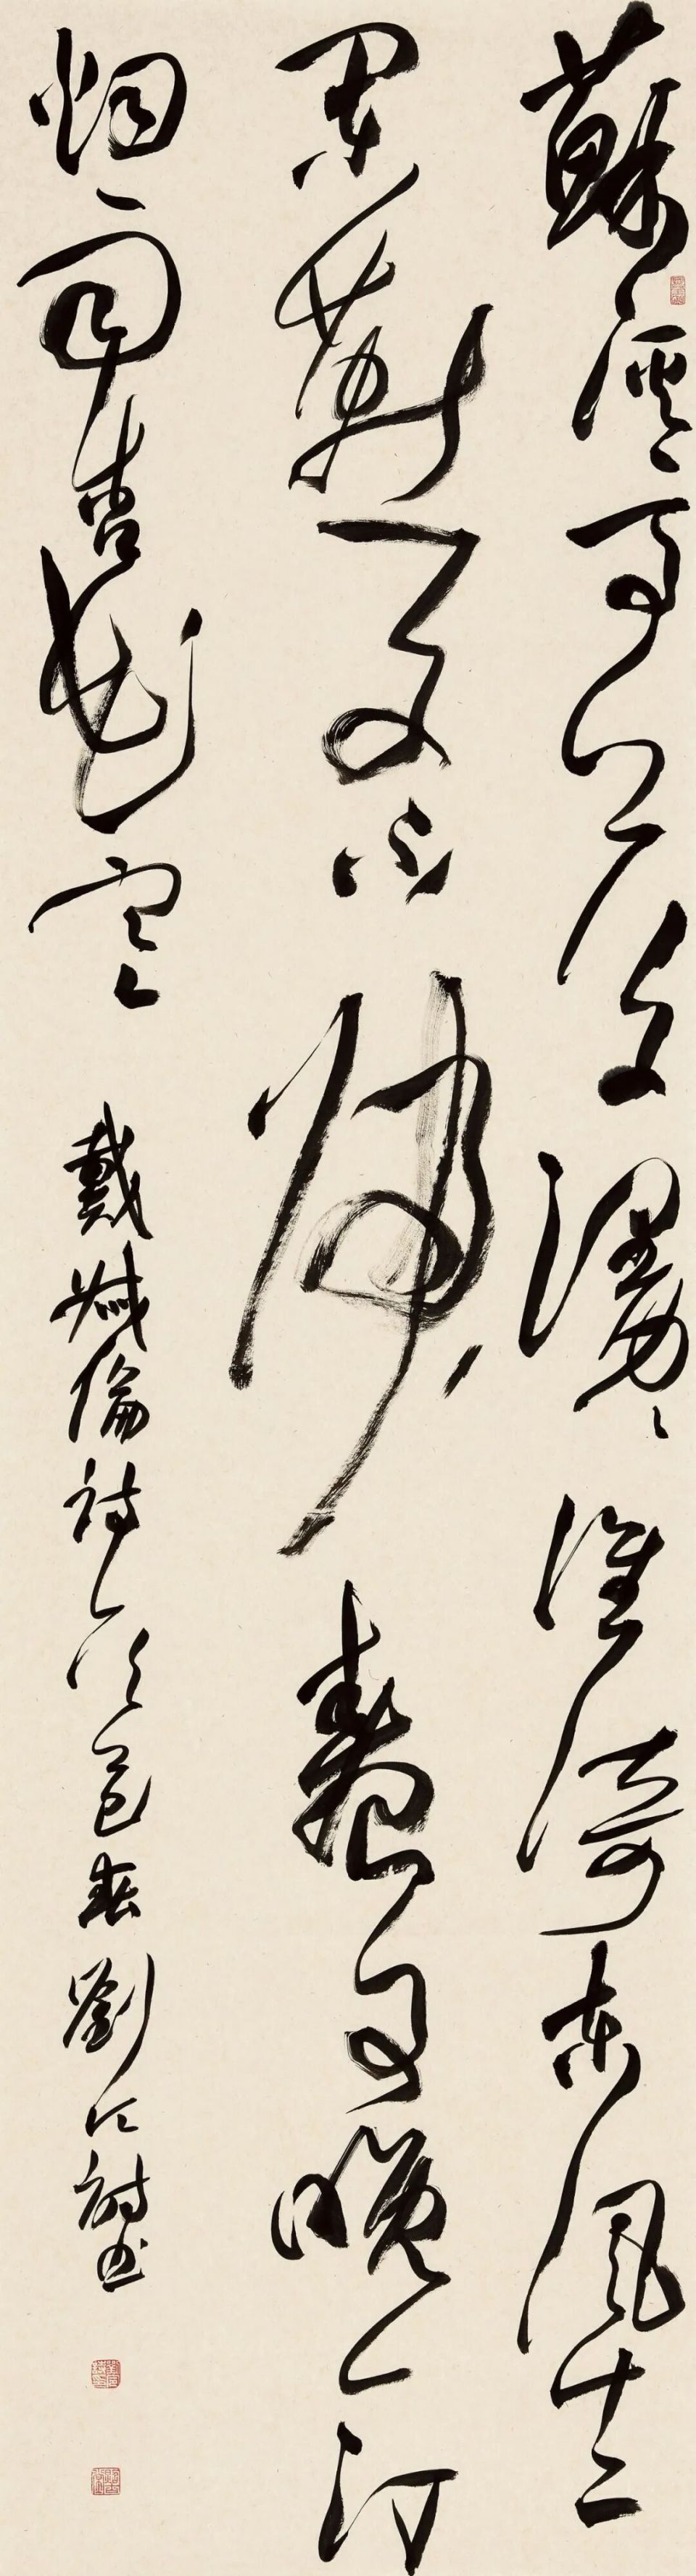 蘇溪亭上草漫漫誰倚東風十二
闌燕子不歸春事晚一汀
烟雨杏花寒 戴叔倫詩 春 劉 書